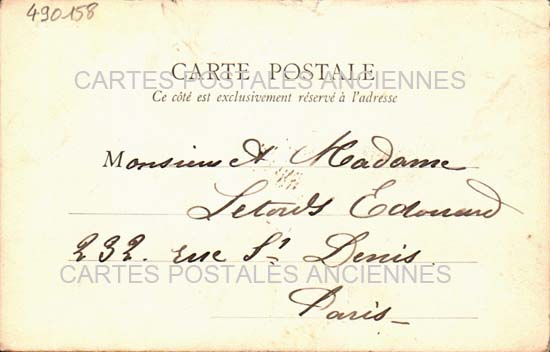 490158
CARTE POSTALE
CARTES POSTALES ANCIENNES
Ce côté est exclusivement réservé à l'adresse
Monsieur et Madame
Edouard
232. rue St Denis
CARTES POSTALES ANCIENNES
Paris